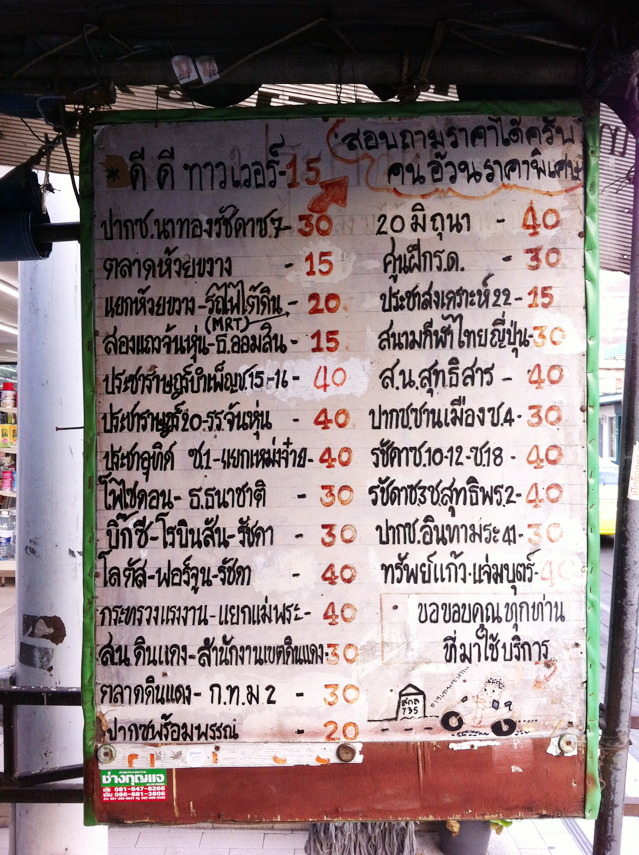 สอบถามราคาได้ครับ
คนอ้วนราคาพิเศษ
* ดี ดี ทาวเวอร์-15
ปากซ.นาทองรัชดาซ.7-30
ตลาดห้วยขวาง - 15
แยกห้วยขวาง-รถไฟใต้ดิน - 20
(MRT)
สองแถวจันหุ่น-ธ.ออมสิน - 15
ประชาราษฎร์บำเพ็ญซ15-16 - 40
ประชาราษฎร์20-รร.จันหุ่น - 40
ประชาอุทิศ ซ.1-แยกเหม่งจ๋าย-40
โพไซดอน-ธ.ธนาชาติ - 30
บิ๊กซี-โรบินสัน-รัชดา - 30
โลตัส-ฟอร์จูน-รัชดา - 40
กระทรวงแรงงาน-แยกแม่พระ-40
สน.ดินแดง-สำนักงานเขตดินแดง-30
ตลาดดินแดง-ก.ท.ม 2 - 30
ปากซพร้อมพรรณ - 20
20 มิถุนา - 40
ศูนฝึกร.ด. - 30
ประชาสงเคราะห์22-15
สนามกีฬาไทยญี่ปุ่น-30
ส.น.สุทธิสาร - 40
ปากซชานเมืองซ.4-30
รัชดาซ.10-12-ซ18 - 40
รัชดาซ3ซ.สุทธิพร.2-40
ปากซ.อินทามระ41-30
ทรัพย์แก้ว-แจ่มบุตร์-40
ขอขอบคุณทุกท่าน
ที่มาใช้บริการ
สกล
735
ช่างกุญแจ
081-847-8268
086-881-3806